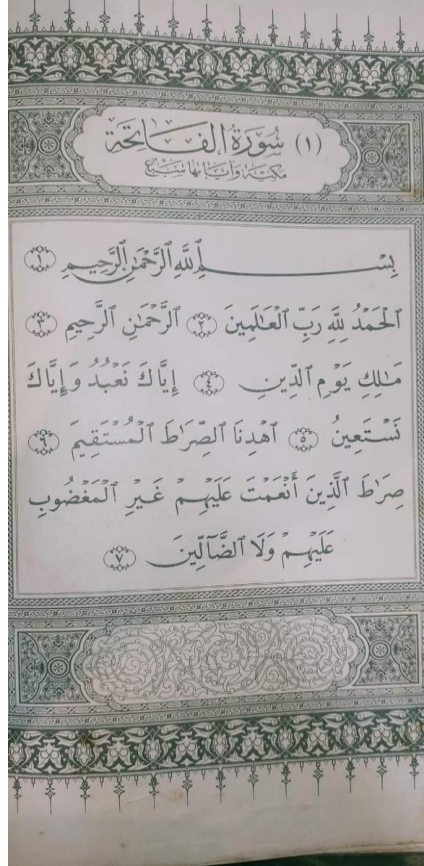 (١) سُورَةُ الفَاتِحَةِ
مَكِّيَّة وَآيَاتُهَا سَبْعٌ
بِسْمِ ٱللَّهِ ٱلرَّحْمَٰنِ ٱلرَّحِيمِ ١
ٱلْحَمْدُ لِلَّهِ رَبِّ ٱلْعَٰلَمِينَ ٢ ٱلرَّحْمَٰنِ ٱلرَّحِيمِ ٣
مَٰلِكِ يَوْمِ ٱلدِّينِ ٤ إِيَّاكَ نَعْبُدُ وَإِيَّاكَ
نَسْتَعِينُ ٥ ٱهْدِنَا ٱلصِّرَٰطَ ٱلْمُسْتَقِيمَ ٦
صِرَٰطَ ٱلَّذِينَ أَنْعَمْتَ عَلَيْهِمْ غَيْرِ ٱلْمَغْضُوبِ
عَلَيْهِمْ وَلَا ٱلضَّآلِّينَ ٧